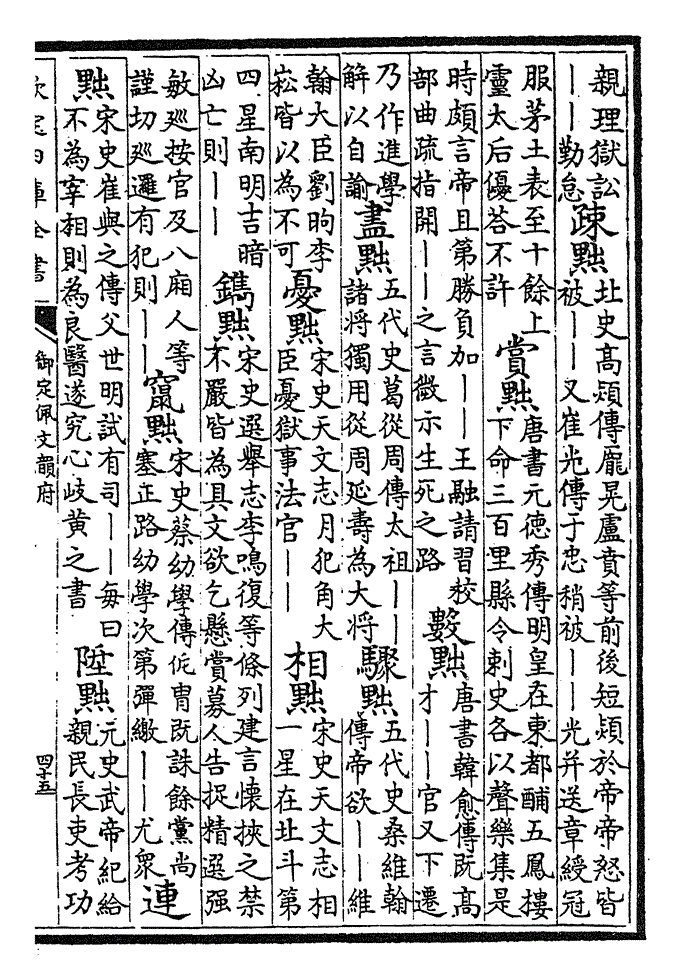 親理獄訟
丨丨勤怠
疎黜
北史高熲傳龐晃盧賁等前後短熲於帝帝怒皆
被丨丨又崔光傳于忠稍被丨丨光并送章綬冠
服茅土表至十餘上
靈太后優答不許
賞黜
唐書元德秀傳明皇在東都酺五鳳樓
下命三百里縣令刺史各以聲樂集是
時頗言帝且第勝負加丨丨王融請習校
部曲疏指開丨丨之言微示生死之路
數黜
唐書韓愈傳既高
才丨丨官又下遷
乃作進學
解以自諭
盡黜
五代史葛從周傳太祖丨丨
諸將獨用從周延壽為大將
驟黜
五代史桑維翰
傳帝欲丨丨維
翰大臣劉昫李
崧皆以為不可
憂黜
宋史天文志月犯角大
臣憂獄事法官丨丨
相黜
宋史天文志相
一星在北斗第
四星南明吉暗
凶亡則丨丨
鐫黜
宋史選舉志李鳴復等條列建言懷挾之禁
不嚴皆為具文欲乞懸賞募人告捉精選强
敏廵按官及八廂人等
謹切廵邏有犯則丨丨
竄黜
宋史蔡幼學傳侂冑既誅餘黨尚
塞正路幼學次第彈繳丨丨尤衆
連
黜
宋史崔與之傳父世明試有司丨丨每曰
不為宰相則為良醫遂究心岐黄之書
陞黜
元史武帝紀給
親民長吏考功
欽定四庫全書
御定佩文韻府
四十五